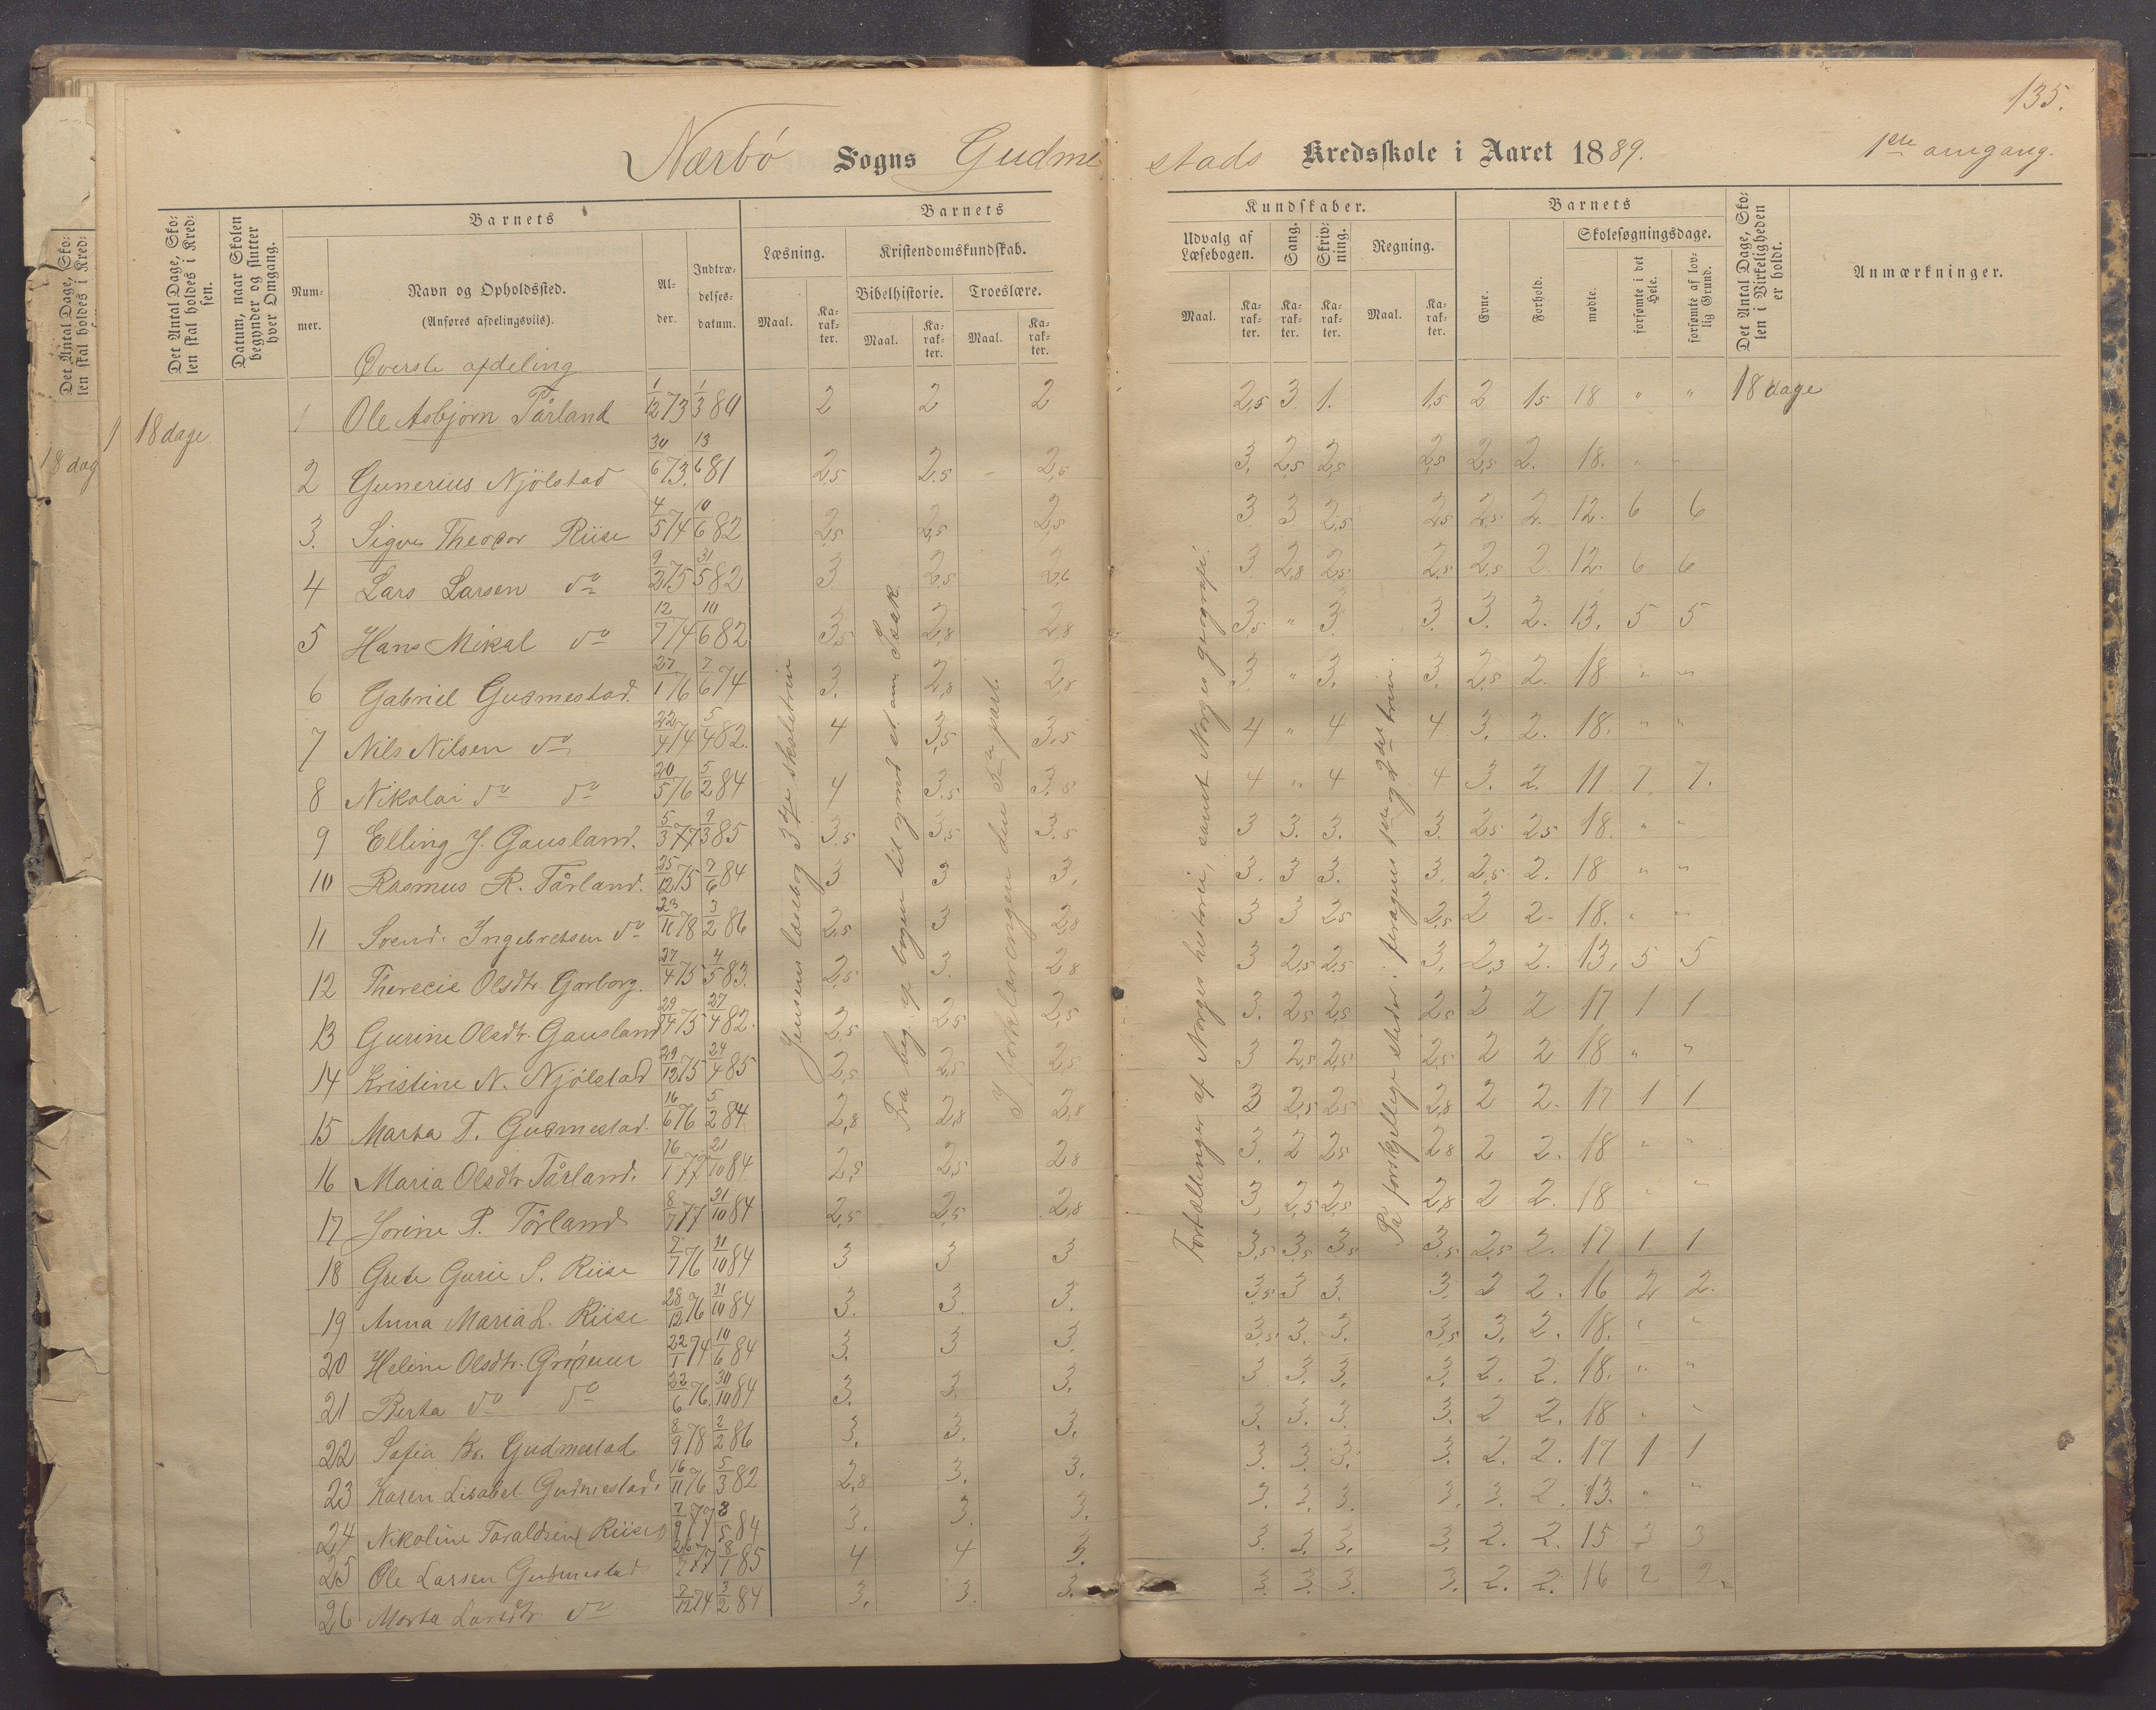 135.
Nærbö Sogns Gudmestads Kredsskole i Aaret 1889. 1ste omgang.
Det Antal Dage, Skolen skal holdes i Kredsen.
Datum, naar Skolen begynder og slutter hver Omgang.
Barnets
Nummer.
Navn og Opholdssted.
(Anføres afdelingsviis).
Alder.
Indtrædelsesdatum.
Barnets
Læsning.
Kristendomskundskab.
Bibelhistorie. Troeslære.
Maal. Karakter. Maal. Karakter. Maal. Karakter.
Kundskaber.
Udvalg af Læsebogen. Sang. Skrivning. Regning.
Maal. Karakter. Karakter. Karakter. Maal. Karakter.
Barnets
Evne. Forhold.
Skolesøgningsdage.
mødte. forsømte i det Hele. forsømte af lovlig Grund.
Det Antal Dage, Skolen i Virkeligheden er holdt.
Anmærkninger.
Øverste afdeling
18 dage. 1 Ole Asbjörn Tårland 1/12 73 1/3 84 2 2 2 2,5 3. 1. 1,5 2 1,5 18 " " 18 dage
2 Gunerius Njölstad 30/6 73. 13/6 81 2,5 2,5 2,5 3. 2,5 2,5 2,5 2,5 2. 18. " "
3. Sigve Theodor Riise 4/5 74 10/6 82 2,5 2,5 2,5 3 3. 2,5 2,5 2,5 2. 12. 6 6
4 Lars Larsen do 9/2 75 31/5 82 3 2,5 2,6 3. 2,8 2,5 2,5 2,5 2. 12. 6 6
5 Hans Mikal do 12/7 74 10/6 82 3,5 2,8 2,8 3,5 " 3. 3. 3. 2. 13. 5 5
6 Gabriel Gudmestad. 27/1 76 7/6 74 3. 2,8 2,8 3. " 3. 3. 2,5 2. 18 " "
7 Nils Nilsen do 22/4 74 5/4 82. 4 3,5 3,5 4 " 4 4 3. 2. 18. " "
8 Nikolai do do 20/5 76 5/2 84 4 3,5 3,5 4 " 4 4 3. 2. 11 7. 7.
9 Elling J. Gausland. 5/3 77 9/3 85 3,5 3,5 3,5 3 3. 3. 3. 2,5 2,5 18. " "
10 Rasmus R. Tårland. 25/12 75 7/6 84 3 3 3. 3. 3 3. 3. 2,5 2. 18 " "
11 Svend. Ingebretsen do 23/11 78 3/2 86 2,5 3 2,8 3 3 2,5 2,5 2 2. 18. " "
12 Therecie Olsdtr. Garborg. 27/4 75 4/5 83. 2,5 3. 2,8 3 2,5 2,5 3. 2,3 2. 13. 5 5
13 Gurine Olsdtr. Gausland 75 27/4 82. 2,5 2,5 2,5 3. 2,5 2,5 2,5 2 2 17 1 1
14 Kristine N. Njölstad 29/12 75 24/4 85 2,5 2,5 2,5 3 2,5 2,5 2,5 2 2 18 " "
15 Marta T. Gudmestad. 16/6 76 5/2 84 2,8 2,8 2,8 3 2,5 2,5 2,8 2 2. 17 1 1
16 Maria Olsdtr Tårland. 16/1 77 21/10 84 2,5 2,5 2,8 3. 2 2,5 2,8 2 2. 18 " "
17 Jorine P. Tårland 8/7 77 31/10 84 2,5 2,5 2,8 3. 2,5 2,5 2,8 2 2. 18 " "
18 Grete Gurie S. Riise 2/7 76 31/10 84 3 3 3 3,5 3,5 3,5 3,5 2,5 2. 17 1 1
19 Anna Maria L. Riise 28/12 76 31/10 84 3. 3. 3. 3,5 3 3. 3. 2 2. 16 2 2.
20 Heline Olsdtr. 22/1 74 10/6 84 3. 3 3. 3,5 3. 3. 3,5 3. 2. 18. " "
21 Berta do do 22/6 76. 30/10 84 3. 3. 3. 3 3. 3. 3. 2. 2. 18. " "
22 Sofia Gudmestad 8/9 78 2/2 86 3. 3. 3. 3. 3. 3. 3. 2 2. 18 " "
23 Karen Lisabet Gudmestad. 16/11 76 5/3 82 2,8 3. 3. 3. 3. 3. 3. 2. 2. 17 1 1
24 Nikoline Taraldsen Riise 7/9 77 3/5 84 3. 3. 3. 3. 3. 3. 3. 3. 2. 13. " "
25 Ole Larsen Gudmestad 77 8/1 85 4 4 3. 3. 3. 3. 3. 2. 2. 15 3 3
26 Marta Larsdtr do 2/12 74 3/2 84 3. 3. 3. 3. 3. 3. 3. 2. 2. 16 2 2.
Jensens læsebog 3dje skoletrin
Fra beg. af bogen til
I forklaringen den 5te part.
Fortællinger af Norges historie, samt Norges geografi.
På forskjellige steder i 1ste og 2det trin.
Det Antal Dage, Skolen skal holdes i Kred
18 dag